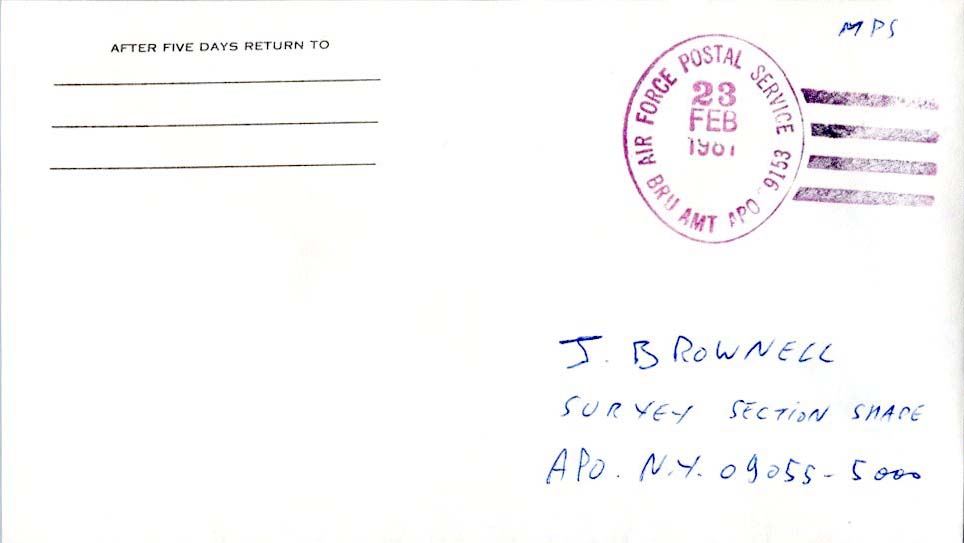 AFTER FIVE DAYS RETURN TO
MPS
AIR FORCE POSTAL SERVICE
23
FEB
BRU AMT APO 09153
J. BROWNELL
SURVEY SECTION SHAPE
APO. N.Y. 09055-5000